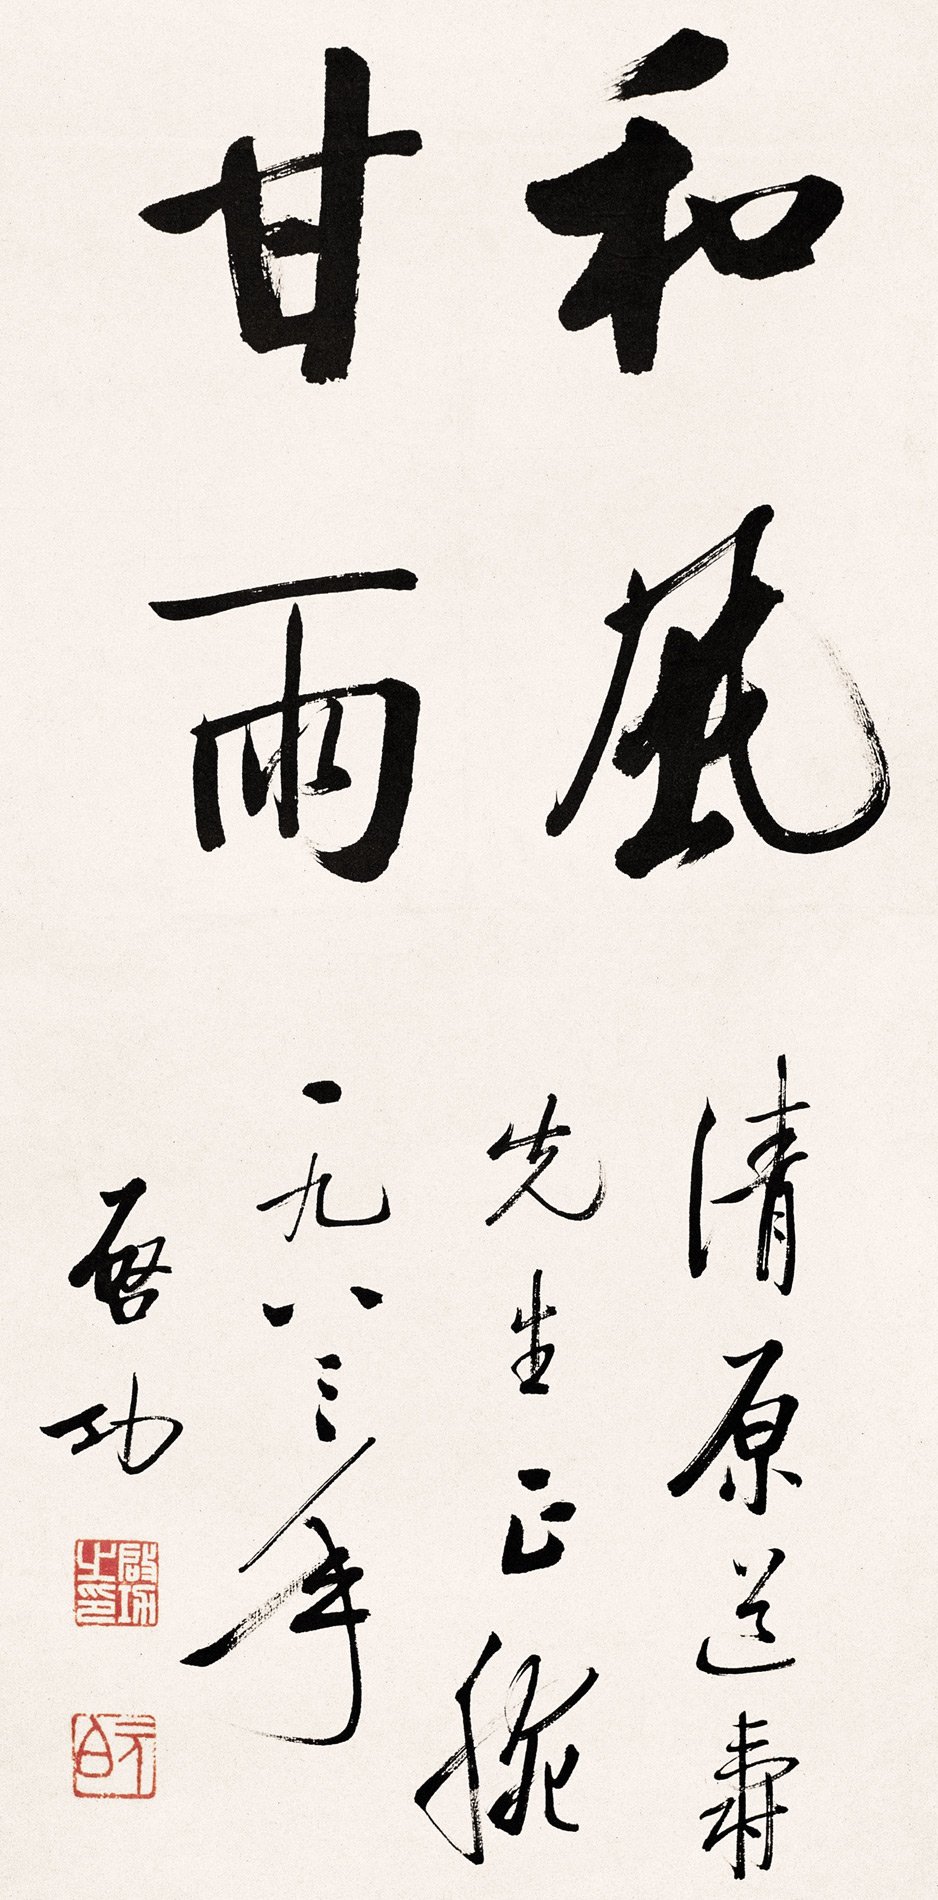 和風
甘雨
清原道壽
先生正腕
一九八三年
啓功
啟功之印
元白